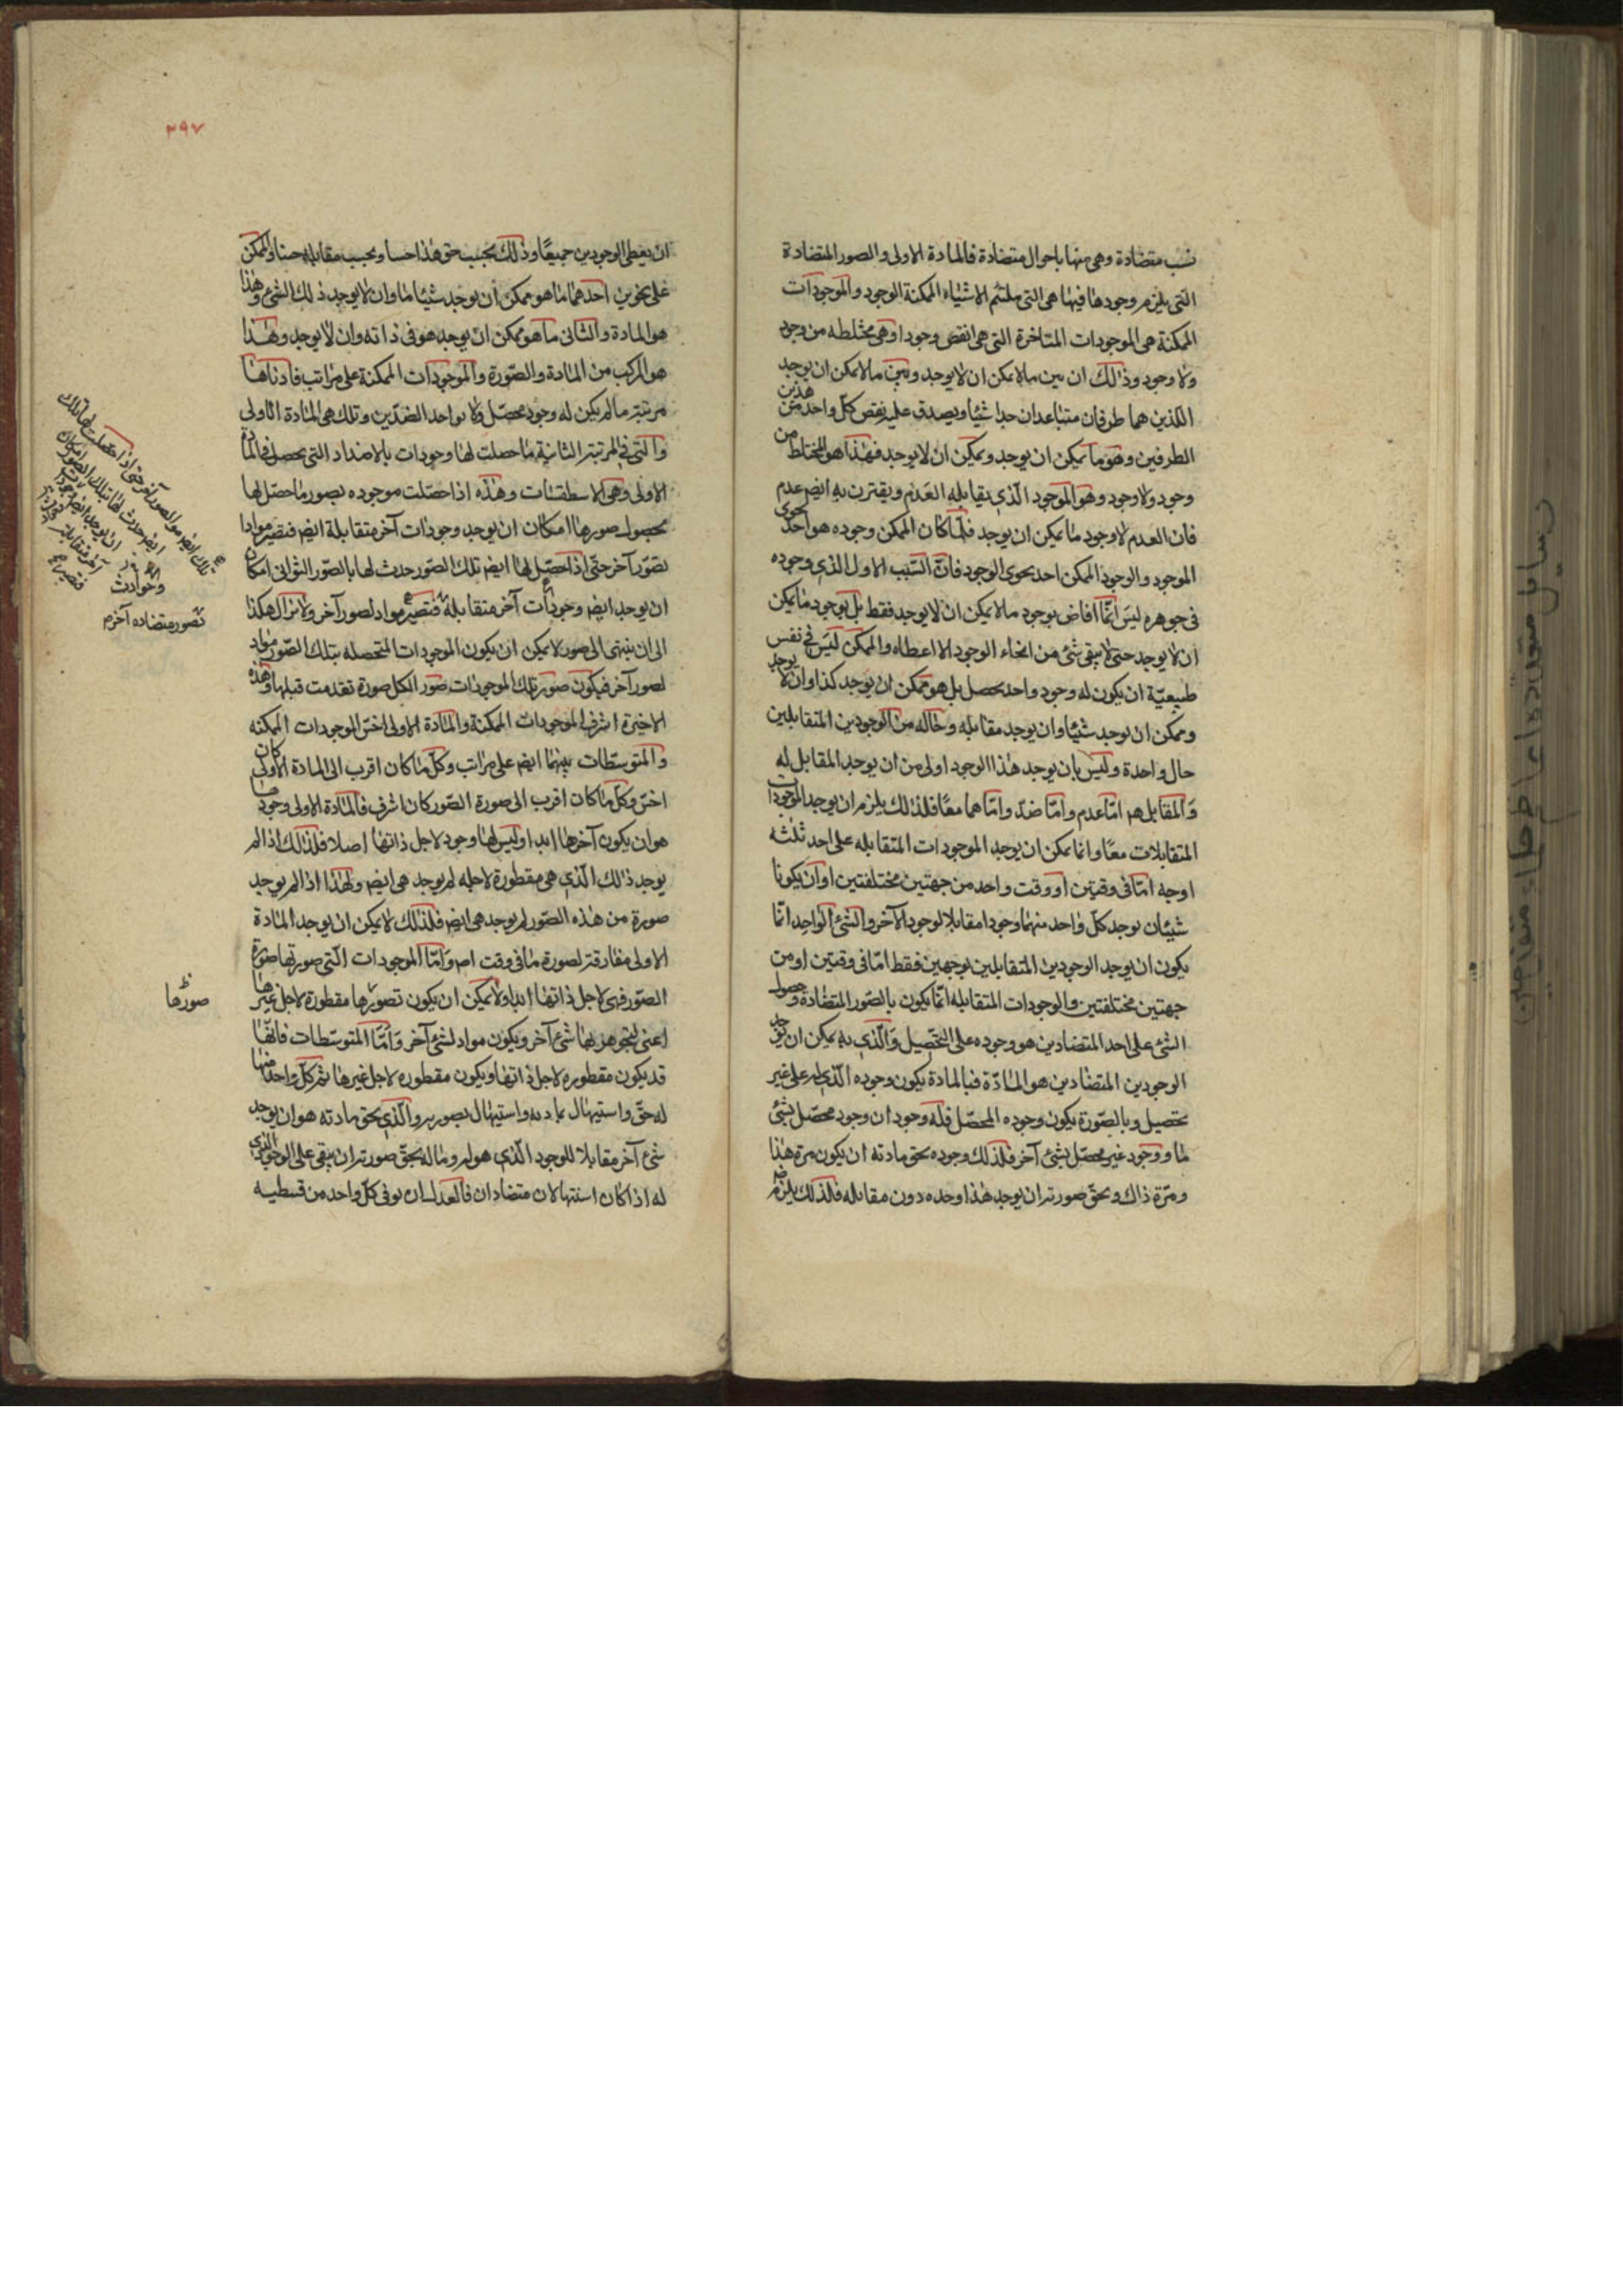 نسب متضادة وهى منها باحوال متضادة فالمادة الاولى والصور المتضادة
التى يلزم وجودها فيها هى التى يلتئم الاشياء الممكنة الوجود والموجودات
الممكنة هى الموجودات المتاخرة التى هى انقص وجودا وهى مختلطه من وجود
ولا وجود وذلك ان بين مالا يمكن ان لا يوجد وبين مالا يمكن ان يوجد
اللذين هما طرفان متباعدان جدا شيئا ويصدق عليه نقص كل واحد من هذين
الطرفين وهو ما يمكن ان يوجد ويمكن ان لا يوجد فهذا هو المختلط من
وجود ولا وجود وهو الموجود الذى يقابله العدم ويقترن به ايضا عدم
فان العدم لا وجود ما يمكن ان يوجد فلما كان الممكن وجوده هو احد نحوى
الموجود والوجود الممكن احد نحوى الوجود فان السبب الاول الذى وجوده
فى جوهره ليس انما افاض بوجود مالا يمكن ان لا يوجد فقط بل بوجود ما يمكن
ان لا يوجد حتى لا يبقى شئ من انحاء الوجود الا اعطاه والممكن ليس فى نفس
طبيعته ان يكون له وجود واحد محصل بل هو ممكن ان يوجد كذا وان لا يوجد
وممكن ان يوجد شيئا وان يوجد مقابله وحاله من الوجودين المتقابلين
حال واحدة وليس بان يوجد هذا الوجود اولى من ان يوجد المقابل له
والمقابل هو اما عدم واما ضد واما هما معا فلذلك يلزم ان يوجد الموجودات
المتقابلات معا وانما يمكن ان يوجد الموجودات المتقابله على احد ثلثه
اوجه اما فى وقتين او وقت واحد من جهتين مختلفتين او ان يكونا
شيئان يوجد كل واحد منهما وجودا مقابلا لوجود الآخر والشئ الواحد انما
يكون ان يوجد الوجودين المتقابلين بوجهين فقط اما فى وقتين او من
جهتين مختلفتين والوجودات المتقابله انما يكون بالصور المتضادة وحصول
الشئ على احد المتضادين هو وجوده على التحصيل والذى به يمكن ان يوجد
الوجودين المتضادين هو المادة فبالمادة يكون وجوده الذى له على غير
تحصيل وبالصورة يكون وجوده المحصل فله وجودان وجود محصل بشئ
ما ووجود غير محصل بشئ آخر فلذلك وجوده بحق مادته ان يكون مرة هذا
ومرة ذاك وبحق صورته ان يوجد هذا وحده دون مقابله فلذلك يلزم
٢٩٧
ان يعطى الوجودين جميعا وذلك بحسب حق هذا حينا وبحسب مقابله حينا والممكن
على نحوين احدهما ما هو ممكن ان يوجد شيئا ما وان لا يوجد ذلك الشئ وهذا
هو المادة والثانى ما هو ممكن ان يوجد هو فى ذاته وان لا يوجد وهذا
هو المركب من المادة والصورة والموجودات الممكنة على مراتب فادناها
مرتبة مالم يكن له وجود محصل ولا بواحد الضدين وتلك هى المادة الاولى
والتى فى المرتبة الثانية ما حصلت لها وجودات بالاضداد التى يحصل فى المادة
الاولى وهى الاسطقسات وهذه اذا حصلت موجوده بصور ما حصل لها
بحصول صورها امكان ان يوجد وجودات آخر متقابلة ايضا فتصير موادا
لصور آخر حتى اذا حصل لها ايضا تلك الصور حدث لها بالصور الثوانى امكان
ان يوجد ايضا وجودات آخر متقابلة فتصير مواد لصور آخر ولا يزال هكذا
الى ان ينتهى الى صور لا يمكن ان يكون الموجودات المتحصله بتلك الصور مواد
لصور آخر فيكون صور تلك الموجودات صور لكل صورة تقدمت قبلها وهذه
الاخيرة اشرف الموجودات الممكنة والمادة الاولى اخس الموجودات الممكنه
والمتوسطات بينهما ايضا على مراتب وكل ما كان اقرب الى المادة الاولى كان
اخس وكل ما كان اقرب الى صورة الصور كان اشرف فالمادة الاولى وجودها
هو ان يكون آخرها ابدا وليس لها وجود لاجل ذاتها اصلا فلذلك اذا لم
يوجد ذلك الذى هى مفطورة لاجله لم يوجد هى ايضا ولهذا اذا لم يوجد
صورة من هذه الصور لم يوجد هى ايضا فلذلك لا يمكن ان يوجد المادة
الاولى مفارقة لصورة ما فى وقت اصلا واما الموجودات التى صورتها صورة
الصور فهى لاجل ذاتها ابدا ولا يمكن ان يكون تصورها مفطورة لاجل غيرها
اعنى ليتجوهر بها شئ آخر ويكون مواد لشئ آخر واما المتوسطات فانها
قد يكون مفطوره لاجل ذاتها ويكون مفطوره لاجل غيرها ثم كل واحد منها
له حق واستيهال بمادته واستيهال بصورته والذى بحق مادته هو ان يوجد
شئ آخر مقابلا للوجود الذى هو له وماله بحق صورته ان يبقى على الوجود الذى
له اذا كان استيهالان متضادان فالعدل ان يوفى كل واحد من قسطيه
وحوادث
تصور متضاده آخرم
صورها